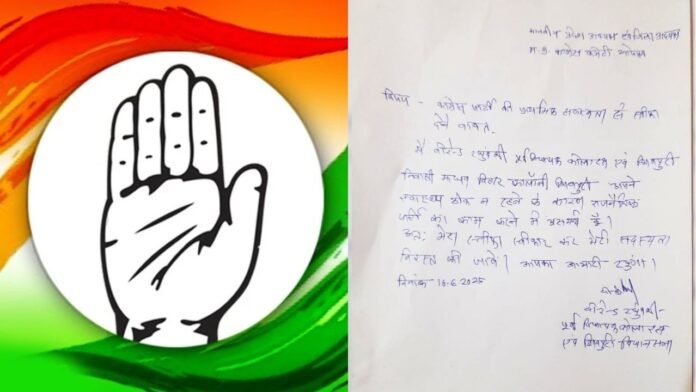 माननीय प्रदेश अध्यक्ष एवं जिला अध्यक्ष
म.प्र. कांग्रेस कमेटी भोपाल
विषय - कांग्रेस पार्टी की प्राथमिक सदस्यता से स्तीफा
देने बावत्
मैं वीरेन्द्र रघुवंशी पूर्व विधायक कोलारस एवं शिवपुरी
निवासी माधव विहार कालोनी शिवपुरी अपने
स्वास्थ्य ठीक न रहने के कारण राजनैतिक
पार्टी का काम करने में असमर्थ हूँ।
अतः मेरा स्तीफा स्वीकार कर मेरी सदस्यता
निरस्त की जावे। आपका आभारी रहूंगा।
दिनांक 16-6-2025
वीरेन्द्र रघुवंशी
पूर्व विधायक कोलारस
एवं शिवपुरी विधानसभा